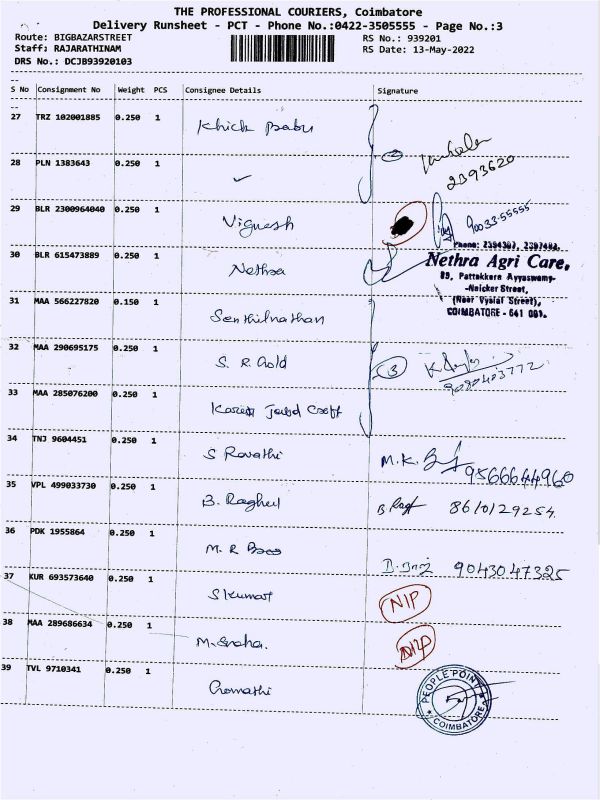 THE PROFESSIONAL COURIERS, Coimbatore
Delivery Runsheet - PCT - Phone No.:0422-3505555 - Page No.:3
Route: BIGBAZARSTREET RS No.: 939201
Staff: RAJARATHINAM RS Date: 13-May-2022
DRS No.: DCJB93920103
S No Consignment No Weight PCS Consignee Details Signature
27 TRZ 102001885 0.250 1 Khick babu
2 2393620
28 PLN 1383643 0.250 1 ✓
29 BLR 2300964040 0.250 1 Vignesh 90033-55555
Phone: 2394307, 2397492,
30 BLR 615473889 0.250 1 Nethra Nethra Agri Care,
89, Pattakkara Ayyaswamy
-Naicker Street,
(Near Vysial Street),
COIMBATORE - 641 001.
31 MAA 566227820 0.150 1 Senthilnathan
32 MAA 290695175 0.250 1 S. R. Gold 3
33 MAA 285076200 0.250 1
34 TNJ 9604451 0.250 1 S Revathi M.K. 9566644960
35 VPL 499033730 0.250 1 B. Raghul B Rag 8610129254
36 PDK 1955864 0.250 1 M. R Bros 9043047325
37 KUR 693573640 0.250 1 S Kumar NIP
38 MAA 289686634 0.250 1 M. Sneha.
39 TVL 9710341 0.250 1 Gomathi
PEOPLE POINT
COIMBATORE